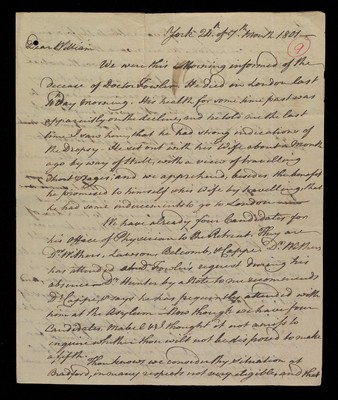 York 24th of 7th Month 1801
9
Dear William
We were this Morning informed of the
decease of Doctor Fowler. He died in London last
Day Morning. His health for some time past was
apparently on the decline, and he told me the last
time I saw him, that he had strong indications of
the Dropsy. He set out with his Wife about a Month
ago by way of Hull, with a view of travelling
short stages; and we apprehend, besides the benefit
he promised to himself & his Wife by travelling, that
he had some inducement to go to London
We have already four Candidates for
his Office of Physician to the Retreat. They are
Drs Withers, Lawson, Belcomb, & Cappe. Dr Withers
has attended at Dr Fowler's request during his
absence. Dr Hunter by a Note to me recommends
Dr Cappe, & says he has frequently attended with
him at the Asylum. Now though we have four
Candidates, Mabel & I thought it not amiss to
inquire whether thou wilt not be disposed to make
a fifth.
Thou knows we consider thy situation at
Bradford, in many respects not very eligible; and that